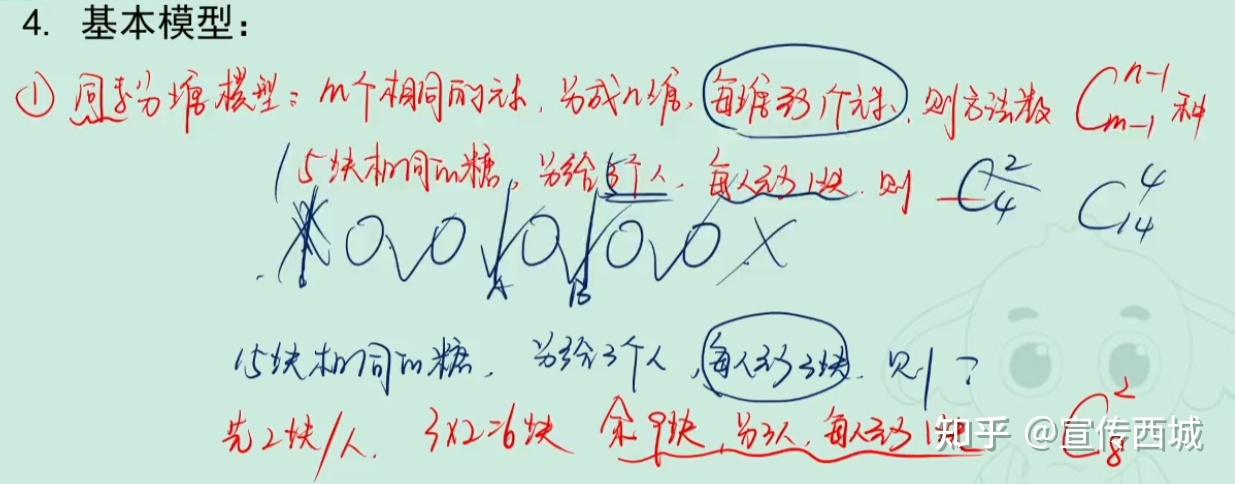 4. 基本模型：
① 同素分堆模型：m个相同的元素，分成n堆，每堆至少1个元素，则方法数 C_{m-1}^{n-1} 种
15块相同的糖，分给5个人，每人至少1块，则 C_4^2 C_{14}^4
X O O O O O X
A B
15块相同的糖，分给3个人，每人至少3块，则？
先2块/人. 3×2=6块 余9块，分3人，每人至少1块 C_8^2
知乎 @宣传西城